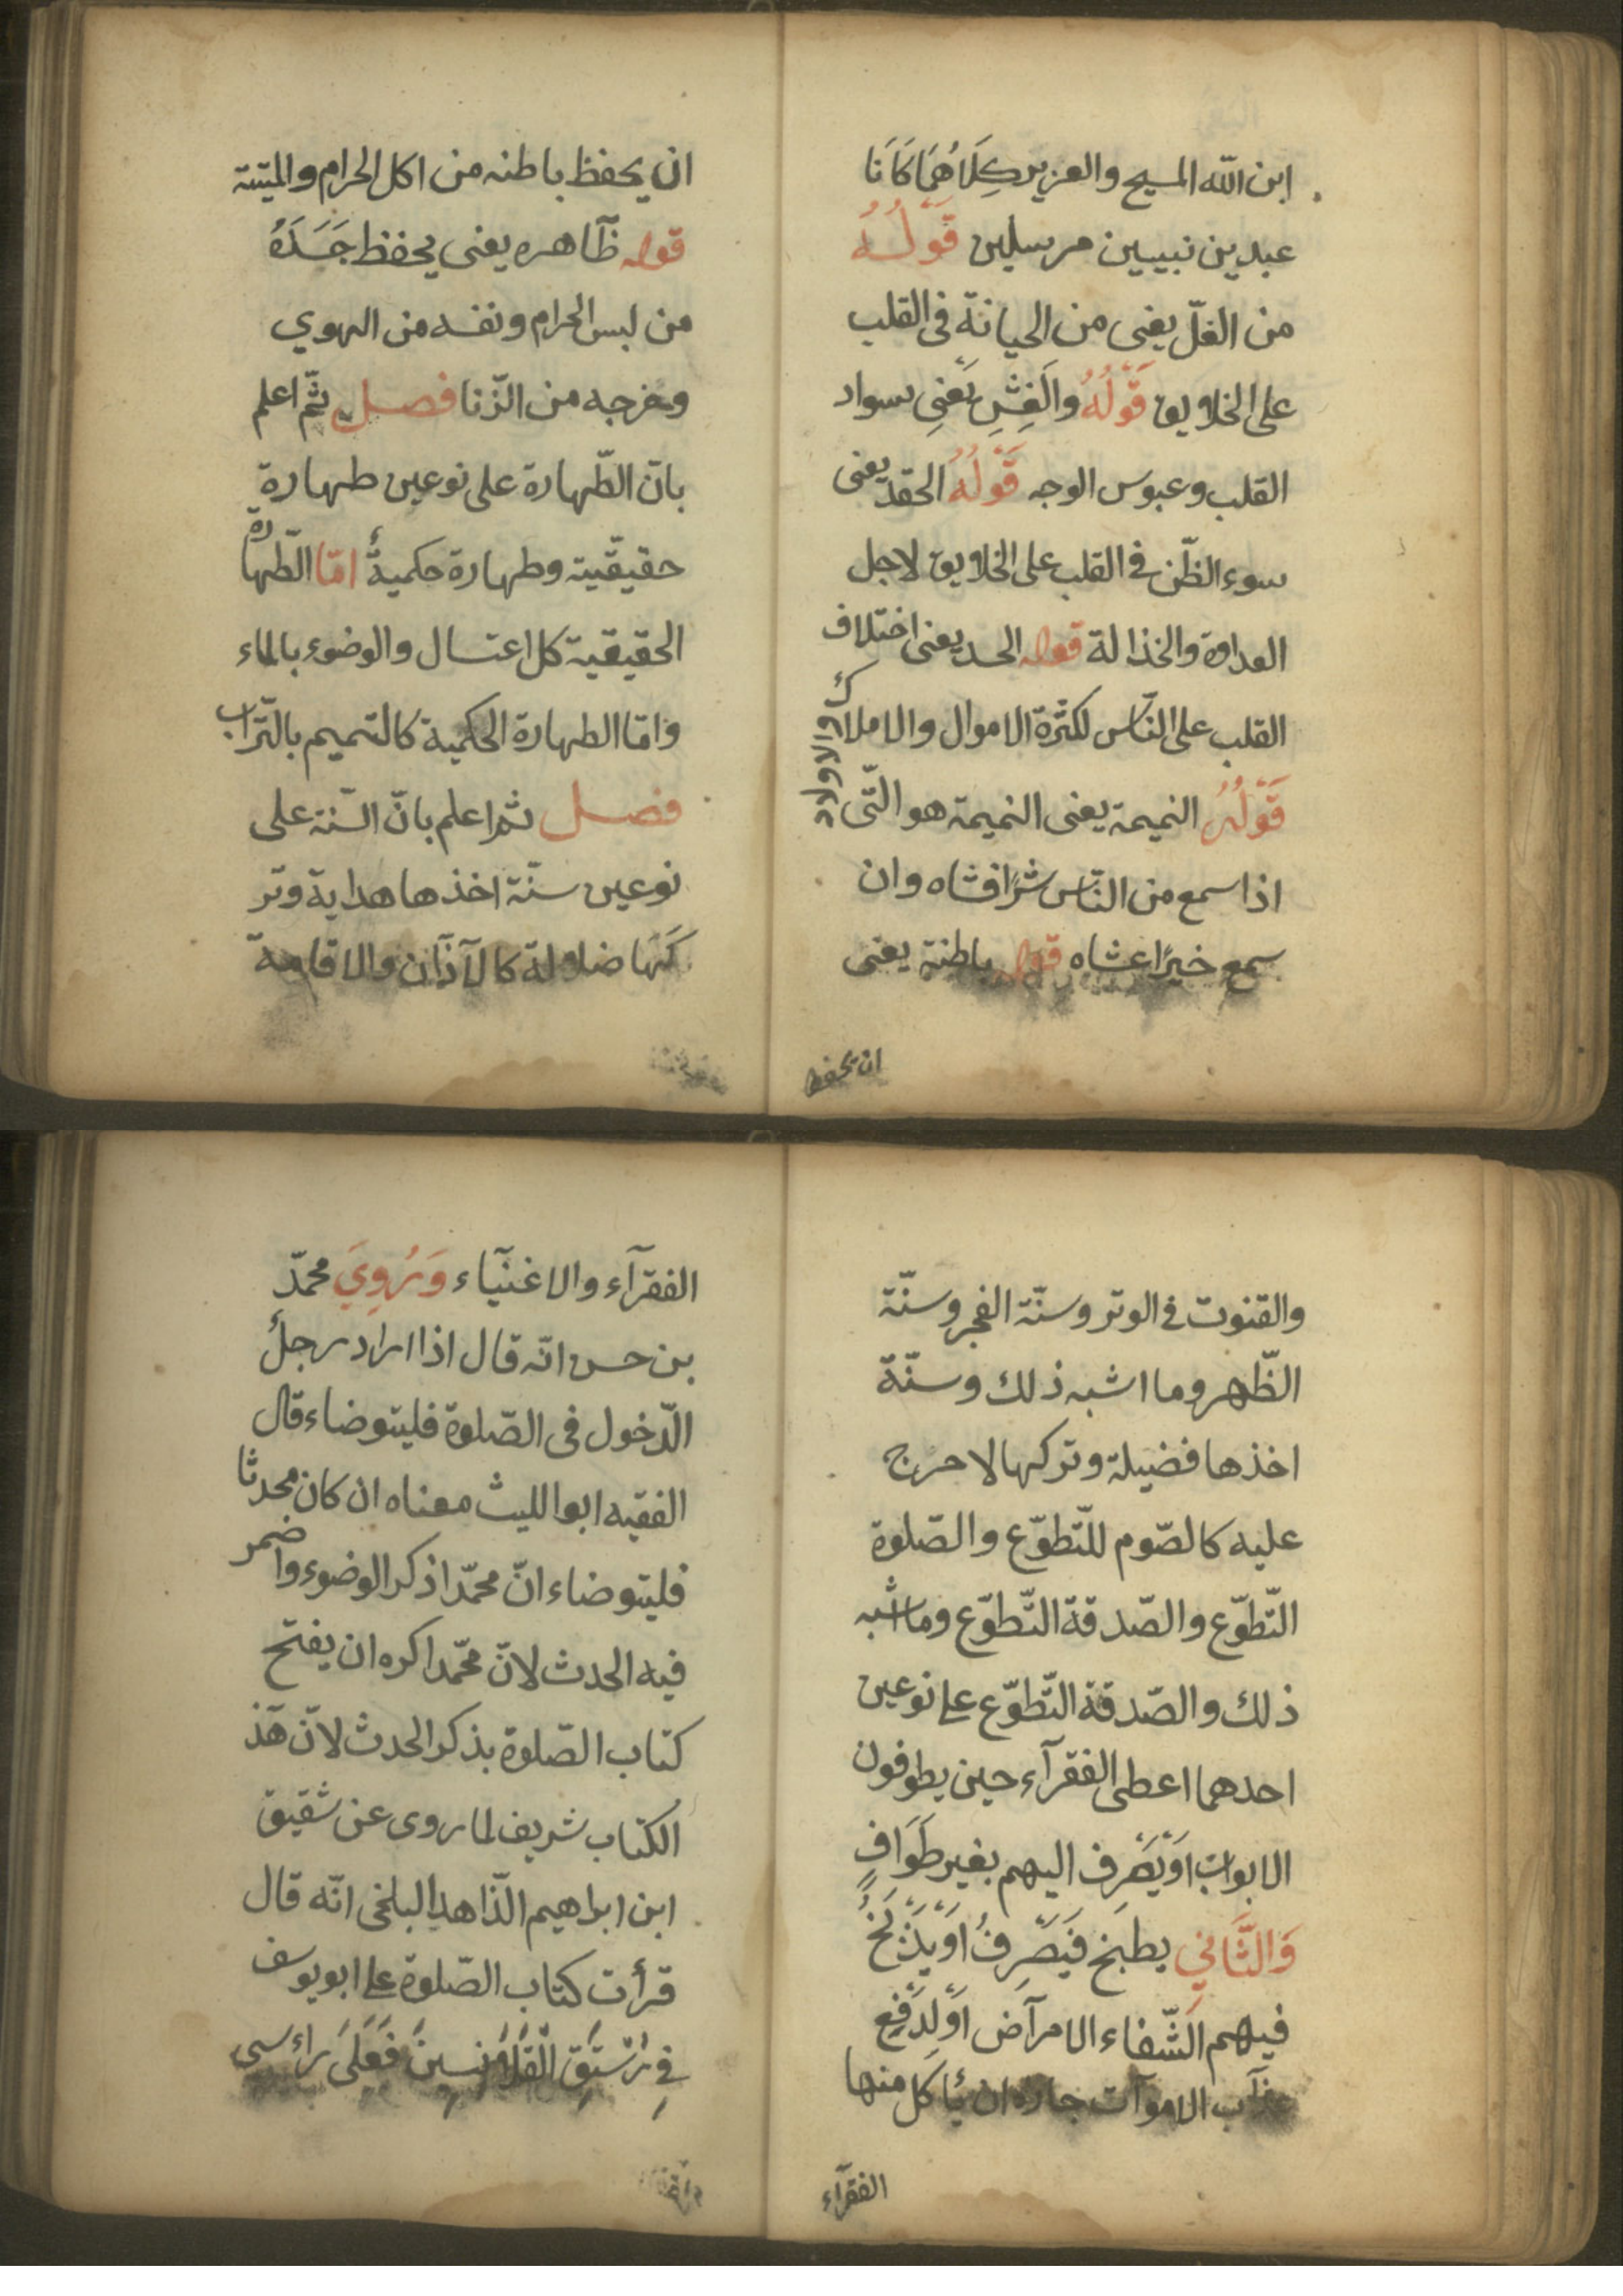 ابن الله المسيح والعزير كِلَاهُمَا كَانَا
عبدين نبيين مرسلين قَوْلُهُ
من الغلّ يعنى من الحيانة فى القلب
على الخلايق قَوْلُهُ والَغِشِ يَعْنِى سواد
القلب وعبوس الوجه قَوْلُهُ الحقد يعنى
سوء الظّن فى القلب على الخلايق لاجل
العداوة والخذالة قوله الحسد يعنى اختلاف
القلب على النّاس لكثرة الاموال والاملاك والاولاد
قَوْلُهُ النميمة يعنى النميمة هو الّتى
اذا سمع من النّاس شرًا فشاه وان
سمع خيرًا عشاه قوله باطنة يعنى
ان يحفظ
ان يحفظ باطنه من اكل الحرام والميتة
قوله ظآهره يعنى يحفظ جَسَدَهُ
من لبس الحرام ونفسه من الهوي
وفرجه من الزّنا فصل ثمّ اعلم
بانّ الطّهارة على نوعين طهارة
حقيقّية وطهارة حكميةٌ امّا الطّهارة
الحقيقية كل اعتسال والوضوء بالماء
وامّا الطهارة الحكمية كالتميم بالتّراب
فصل ثم اعلم بانّ السّنة على
نوعين سنّة اخذها هداية وتر
كَهَا ضلالة كالآذآن والاقامة
والقنوت فى الوتر وسنّة الفجر وسنّة
الظّهر وما اشبه ذلك وسنّة
اخذها فضيلة وتركها لا حرج
عليه كالصّوم للتّطوّع والصّلوة
التّطوّع والصّدقة التّطوّع وما اشبه
ذلك والصّدقة التّطوّع على نوعين
احدهما اعطى الفقرآء حين يطوفون
الابواب اَوْيَصْرِف اليهم بغير طَوَافٍ
وَالثَّانِي يطبخ فَيَصْرِفُ اَوْيَذْبَحُ
فيهم الشّفاء الامرآض اَوْلِدَفِعِ
عذآب الاموآت جازه ان يأكل منها
الفقرآء
الفقرآء والاغنيآء وَرُوِيَ محمدّ
بن حسن انّه قال اذا اراد رجلٌ
الدّخول فى الصّلوة فليتوضاء قال
الفقيه ابوا الليث معناه ان كان محدثا
فليتوضاء انّ محمدّا ذكر الوضوء واضمر
فيه الحدث لانّ محمّدا كره ان يفتح
كتاب الصّلوة بذكر الحدث لانّ هٓذ
الكتاب شريف لما روى عن شقيق
ابن ابراهيم الّذاهد البلخى انّه قال
قرأت كتاب الصّلوة على ابو يوسف
فِى رُسْتَقِ الْقَلَانِسِينَ فَعَلَىَ راءسى